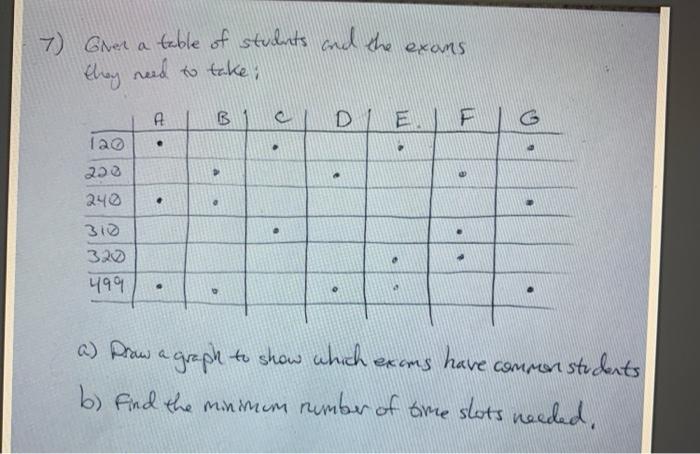 7) Given a table of students and the exams
they need to take;
A B C D E. F G
120
220
240
310
320
499
a) Draw a graph to show which exams have common students
b) Find the minimum number of time slots needed.